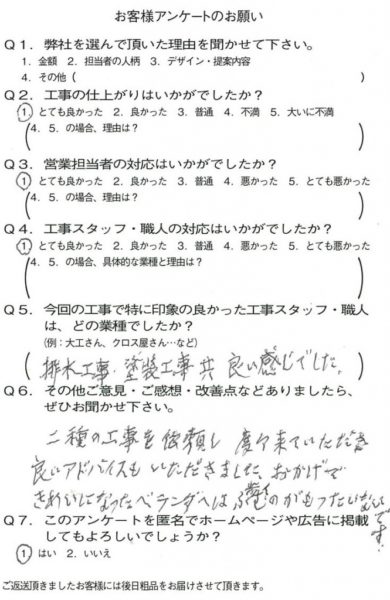 お客様アンケートのお願い
Q1．弊社を選んで頂いた理由を聞かせて下さい。
1．金額　2．担当者の人柄　3．デザイン・提案内容
4．その他（　　　　　　　　　　　　　　　）
Q2．工事の仕上がりはいかがでしたか？
①．とても良かった　2．良かった　3．普通　4．不満　5．大いに不満
（4．5．の場合、理由は？　　　　　　　　　　）
Q3．営業担当者の対応はいかがでしたか？
①．とても良かった　2．良かった　3．普通　4．悪かった　5．とても悪かった
（4．5．の場合、理由は？　　　　　　　　　　）
Q4．工事スタッフ・職人の対応はいかがでしたか？
①．とても良かった　2．良かった　3．普通　4．悪かった　5．とても悪かった
（4．5．の場合、具体的な業種と理由は？　　　　　）
Q5．今回の工事で特に印象の良かった工事スタッフ・職人
は、どの業種でしたか？
（例：大工さん、クロス屋さん…など）
（排水工事・塗装工事共 良い感じでした。）
Q6．その他ご意見・ご感想・改善点などありましたら、
ぜひお聞かせ下さい。
二種の工事を依頼し 度々来ていただき
良いアドバイスもいただきました。おかげで
きれいになったベランダへは 踏むのがもったいない
です。
Q7．このアンケートを匿名でホームページや広告に掲載
してもよろしいでしょうか？
①．はい　2．いいえ
ご返送頂きましたお客様には後日粗品をお届けさせて頂きます。